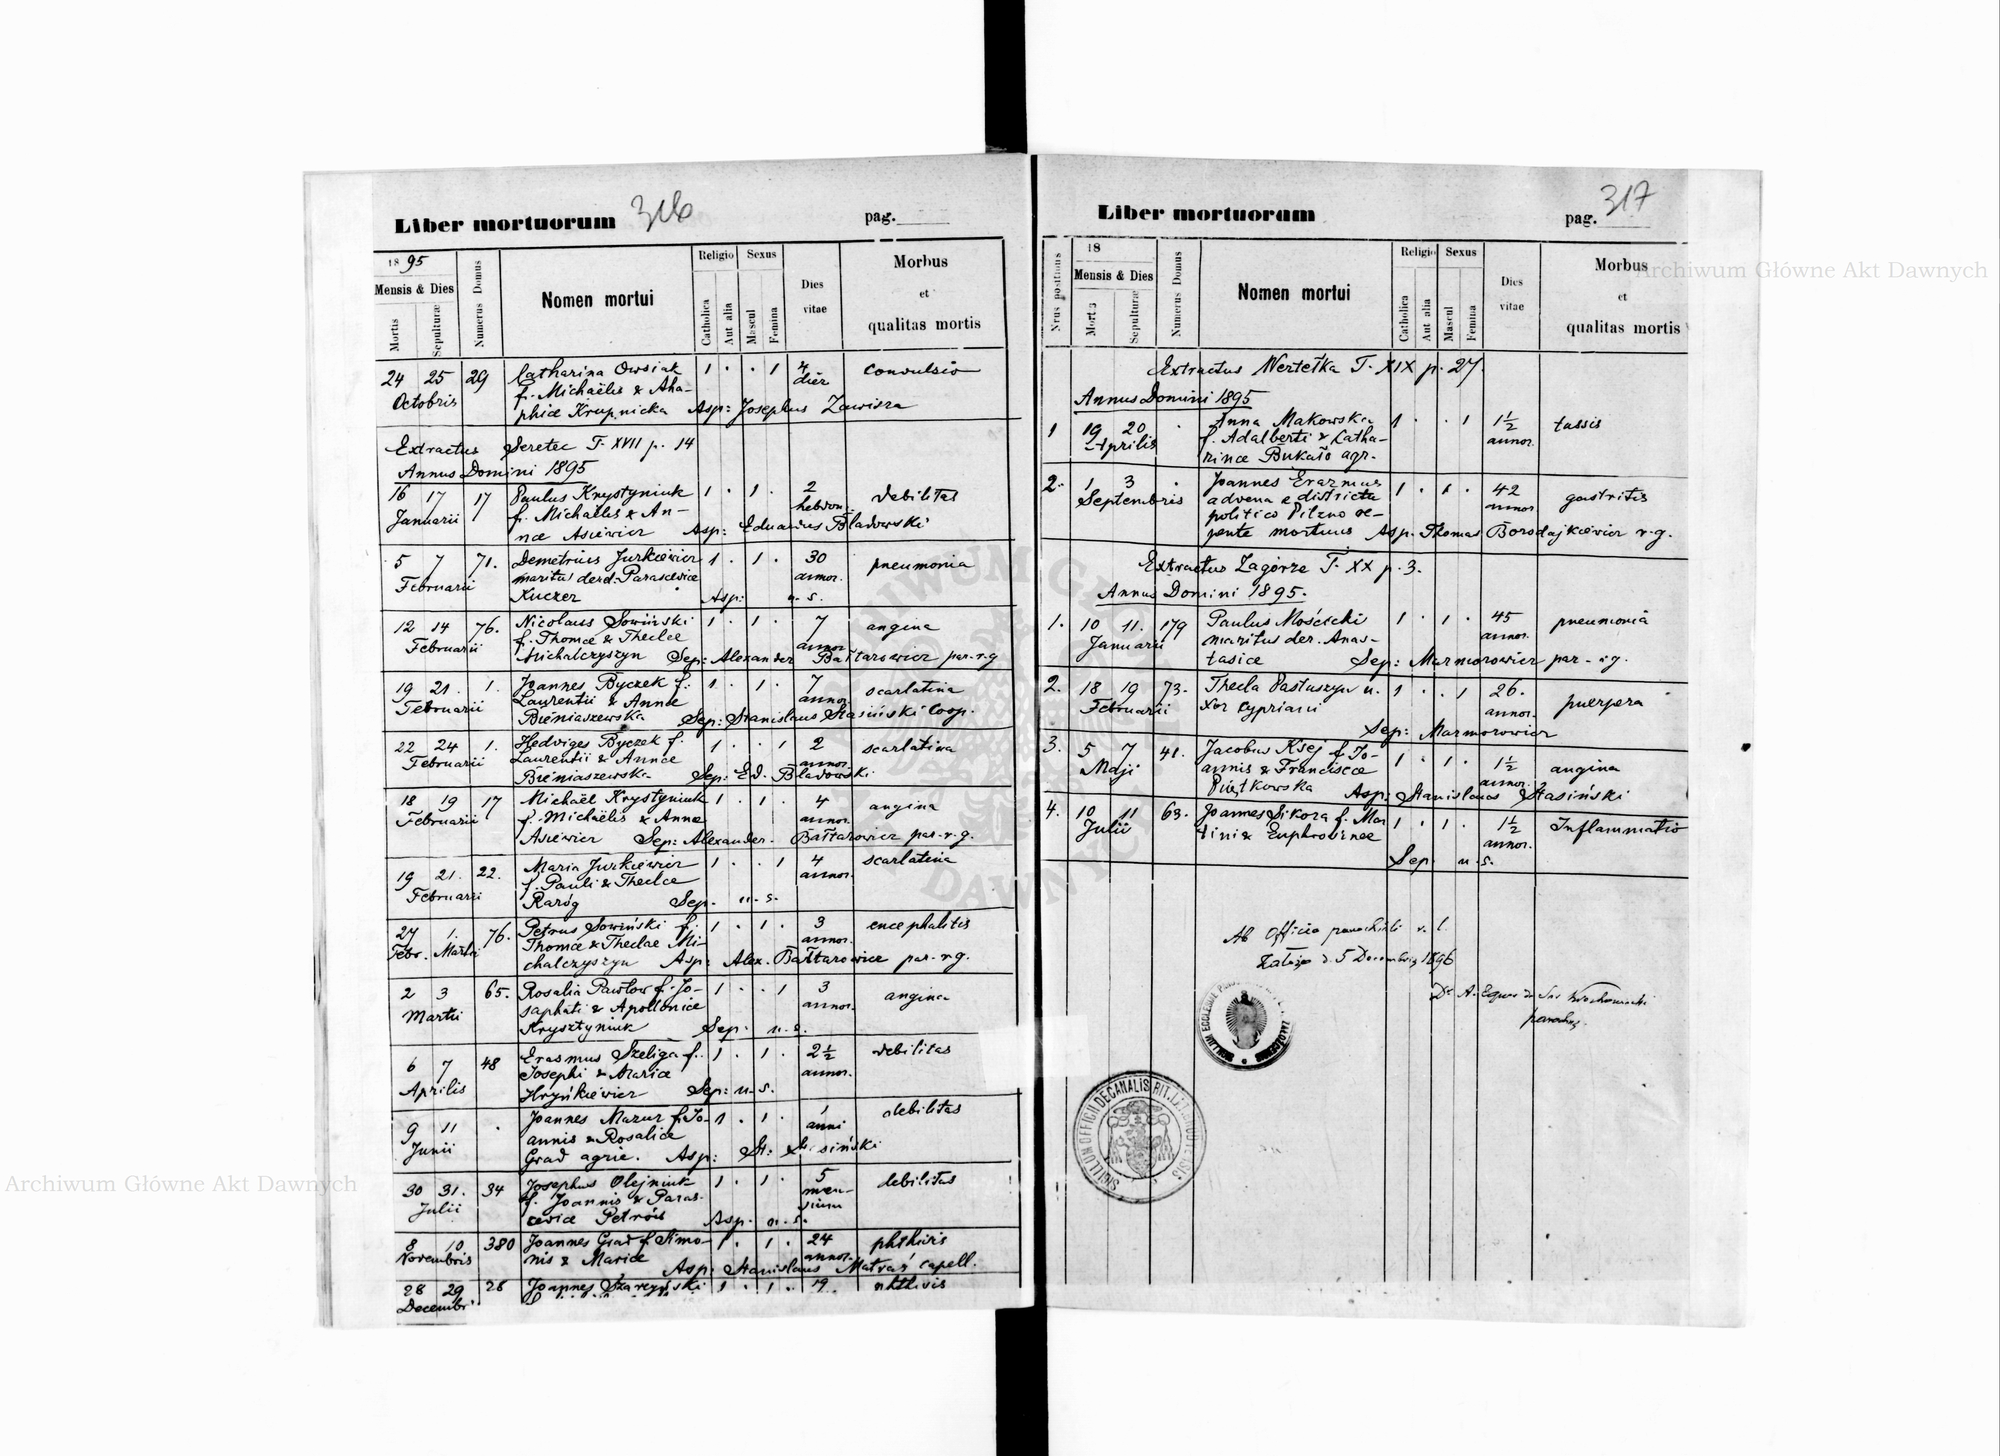 Liber mortuorum 316 pag.
1895
Mensis & Dies
Mortis
Sepulturæ
Numerus Domus
Nomen mortui
Religio
Catholica
Aut alia
Sexus
Mascul
Femina
Dies
vitae
Morbus
et
qualitas mortis
24 25 29 Catharina Owsiak 1 . . 1 4 convulsio
Octobris f. Michaëlis & Aha- dier
phiæ Krupnicka Asp: Josephus Zawisza
Extractus Seretec T. XVII p. 14
Annus Domini 1895
16 17 17 Paulus Krystyniuk 1 . 1 . 2 debilitas
Januarii f. Michaëlis & An- hebdom.
næ Asiewicz Asp: Eduardus Bladowski
5 7 71. Demetrius Jurkiewicz 1 . 1 . 30 pneumonia
Februarii maritus derel. Parascevice annor.
Kuczer Asp: u. s.
12 14 76. Nicolaus Sowiński 1 . 1 . 7 angina
Februarii f. Thomæ & Theclæ annor.
Michalczyszyn Sep: Alexander Bałtarowicz par. r. g
19 21. 1. Joannes Byczek f. 1 . 1 . 7 scarlatina
Februarii Laurentii & Annæ annor
Bieniaszewska Sep: Stanislaus Stasiński Coop.
22 24 1. Hedviges Byczek f. 1 . . 1 2 scarlatina
Februarii Laurentii & Annæ annor.
Bieniaszewska Sep: Ed. Bladowski
18 19 17 Michaël Krystyniuk 1 . 1 . 4 angina
Februarii f. Michaëlis & Annæ annor.
Asiewicz Sep: Alexander. Bałtarowicz par. r. g.
19 21. 22. Maria Jurkiewicz 1 . . 1 4 scarlatina
Februarii f. Pauli & Theclæ annor.
Raróg Sep. u. s.
27 1. 76. Petrus Sowiński f. 1 . 1 . 3 encephalitis
Febr. Martii Thomæ & Theclae Mi- annor.
chalczyszyn Asp: Alex. Bałtarowicz par. r. g.
2 3 65. Rosalia Pawłow f. Jo- 1 . . 1 3 angina
Martii saphati & Apolloniæ annor.
Krysztyniuk Sep: u. s.
6 7 48 Erasmus Szeliga f. 1 . 1 . 2½ debilitas
Aprilis Josephi & Mariæ annor.
Hryńkiewicz Sep: u. s.
9 11 . Joannes Mazur f. Jo- 1 . 1 . 1 debilitas
Junii annis & Rosaliæ anni
Grad agric. Asp: St: Stasiński
30 31. 34 Josephus Olejniuk 1 . 1 . 5 debilitas
Julii f. Joannis & Paras- men-
ceviæ Petrów sium
Asp. u. s.
8 10 380 Joannes Grad f. Simo- 1 . 1 . 24 phthisis
Novembris nis & Mariæ annor.
Asp: Stanislaus Matraś capell.
28 29 28 Joannes Szarzyński 1 . 1 . 19 phthisis
Decembr.
Liber mortuorum pag. 317
Nrus positionis
18
Mensis & Dies
Mortis
Sepulturæ
Numerus Domus
Nomen mortui
Religio
Catholica
Aut alia
Sexus
Mascul
Femina
Dies
vitae
Morbus
et
qualitas mortis
Extractus Wertełka T. XIX p. 27.
Annus Domini 1895
1 19 20 . Anna Makowska 1 . . 1 1½ tussis
Aprilis f. Adalberti & Catha- annor.
rinæ Bukało agr.
2. 1 3 . Joannes Erazmus 1 . 1 . 42 gastritis
Septembris advena e districtu annor
politico Pilzno re-
pente mortuus Asp. Thomas Borodajkiewicz r. g.
Extractus Zagórze T. XX p. 3.
Annus Domini 1895.
1. 10 11. 179 Paulus Mościcki 1 . 1 . 45 pneumonia
Januarii maritus der. Anas- annor.
tasiæ Sep: Marmorowicz par. r. g.
2. 18 19 73. Thecla Pastuszyn u- 1 . . 1 26. puerpera
Februarii xor Cypriani annor.
Sep: Marmorowicz
3. 5 7 41. Jacobus Ksej f. Jo- 1 . 1 . 1½ angina
Maji annis & Franciscæ annor.
Piątkowska Asp: Stanislaus Stasiński
4. 10 11 63. Joannes Sikora f. Mar 1 . 1 . 1½ Inflammatio
Julii tini & Euphrosinæ annor.
Sep. u. s.
Ab Officio parochiali r. l.
Załoźce d. 5 Decembris 1896
parochus
SIGILLUM OFFICII DECANALIS RIT. LAT.
SIGILLUM ECCLESIAE
Archiwum Główne Akt Dawnych
Archiwum Główne Akt Dawnych
ARCHIWUM GŁÓWNE AKT DAWNYCH